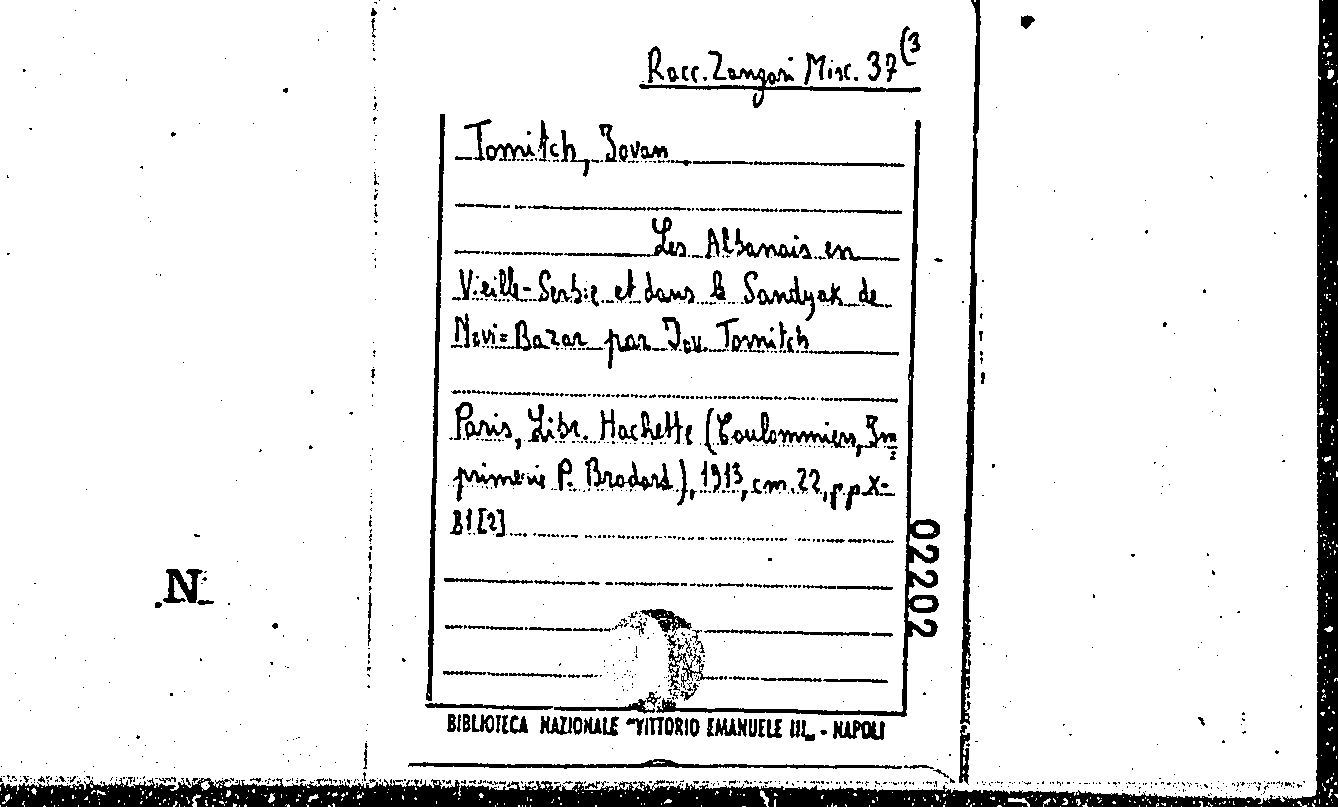 Racc. Zangari Misc. 37 (3
Tomitch, Jovan.
Les Albanais en
Vieille-Serbie et dans le Sandyak de
Novi=Bazar par Jov. Tomitch
Paris, Libr. Hachette (Coulommiers, Im=
primerie P. Brodard), 1913, cm. 22, pp X-
81[2]
02202
N
BIBLIOTECA NAZIONALE "VITTORIO EMANUELE III„ - NAPOLI